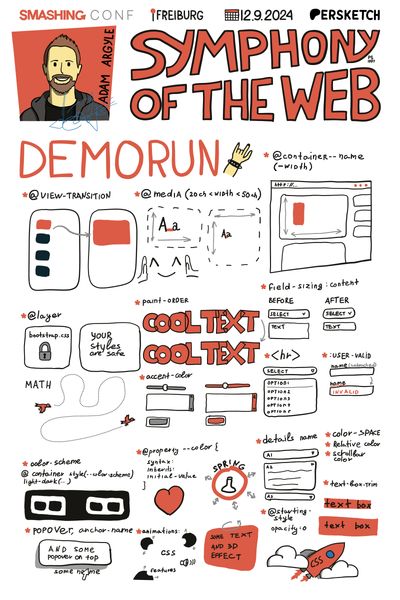 SMASHING CONF
FREIBURG
12.9.2024
PERSKETCH
ADAM ARGYLE
SYMPHONY
OF THE WEB
DEMORUN
* @container--name
(-width)
* @VIEW-TRANSITION
* @media (20ch < width < 50ch)
Aa
Aa
field-sizing: content
BEFORE
AFTER
SELECT
SELECT
TEXT
TEXT
* paint-ORDER
COOL TEXT
COOL TEXT
* @layer
bootstrap.css
YOUR
styles
are safe
MATH
* accent-color
* <hr>
SELECT
OPTION1
OPTION2
OPTION3
OPTION4
OPTION5
* :USER-VALID
name
name
INVALID
* color-scheme
@ container style(--color-scheme)
light-dark(...)
* @property --color {
syntax:
inherits:
initial-value
SPRING
details name
A1
A2
* color-SPACE
* Relative color
* scrollbar
color
* text-box-trim
text box
text box
* POPOVER, anchor-name
AND some
popover on top
some name
* animations:
CSS
features
SOME TEXT
AND 3D
EFFECT
* @starting-
style
opacity: 0
CSS